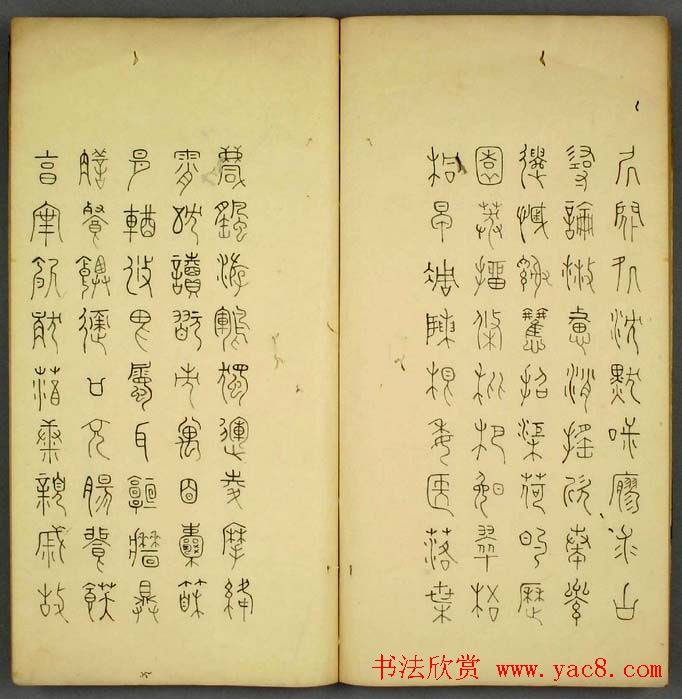 居閒處沈默寂寥求古
尋論散慮逍遙欣奏累
遣慼謝歡招渠荷的歷
園莽抽條枇杷晚翠梧
桐早凋陳根委翳落葉
飄颻遊鵾獨運凌摩絳
霄耽讀翫市寓目囊箱
易輶攸畏屬耳垣牆具
膳餐飯適口充腸飽飫
烹宰飢厭糟糠親戚故
书法欣赏 www.yac8.com